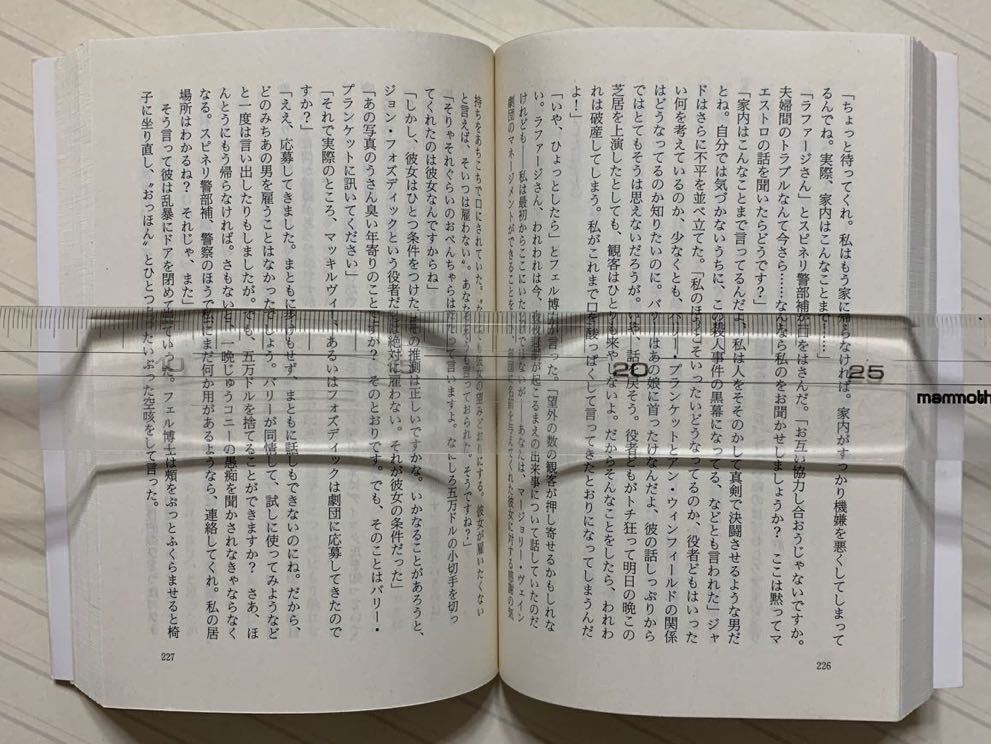 「ちょっと待ってくれ。私はもう家に帰らなければ。家内がすっかり機嫌を悪くしてしまって
るんでね。実際、家内はこんなことまで……」
「ラファージさん」とスピネリ警部補が口をはさんだ。「お互い協力し合おうじゃないですか。
夫婦間のトラブルなんて今さら……なんなら私のをお聞かせしましょうか？　ここは黙ってマ
エストロの話を聞いたらどうです？」
「家内はこんなことまで言ってるんだよ、私は人をそそのかして真剣で決闘させるような男だ
とね。自分では気づかないうちに、この殺人事件の黒幕になってる、などとも言われた」ジャ
ドはさらに不平を並べ立てた。「私のほうこそいったいどうなってるのか、役者どもはいった
い何を考えているのか、少なくとも、バリー・プランケットとアン・ウィンフィールドの関係
はどうなってるのか知りたいのに。バリーはあの娘に首ったけなんだよ、彼の話しっぷりから
ではとてもそうは思えないだろうが。いや、話を戻そう。役者どもがトチ狂って明日の晩この
芝居を上演したとしても、観客はひとりも来やしないよ。だからそんなことをしたら、われわ
れは破産してしまう。私がこれまで口を酸っぱくして言ってきたとおりになってしまうんだ
よ！」
「いや、ひょっとしたら」とフェル博士が言った。「望外の数の観客が押し寄せるかもしれな
い。ラファージさん、われわれは今、殺人事件が起こるまえの出来事について話していたのだ
けれども――私は最初からここにいたわけではないが――あなたは、マージョリー・ヴェイン
劇団のマネージメントができることを、
持ちをあちこちで口にされていた。
と言えば、そいつは雇わない〟。あなたはそうも言っておられた。そうですね？」
「そりゃそれぐらいのおべんちゃらは私だって言いますよ。なにしろ五万ドルの小切手を切っ
てくれたのは彼女なんですからね」
「しかし、彼女はひとつ条件をつけた。私の推測は正しいですかな。いかなることがあろうと、
ジョン・フォズディックという役者だけは絶対に雇わない。それが彼女の条件だった」
「あの写真のうさん臭い年寄りのことですか？　そのとおりです。でも、そのことはバリー・
プランケットに訊いてください」
「それで実際のところ、マッキルヴィー、あるいはフォズディックは劇団に応募してきたので
すか？」
「ええ、応募してきました。まともに歩けもせず、まともに話しもできないのにね。だから、
どのみちあの男を雇うことはなかったでしょう。バリーが同情して、試しに使ってみようなど
と一度は言い出したりもしましたが。でも、五万ドルを捨てることができますか？　さあ、ほ
んとうにもう帰らなければ。さもないと、一晩じゅうコニーの愚痴を聞かされなきゃならなく
なる。スピネリ警部補、警察のほうで私にまだ何か用があるようなら、連絡してくれ。私の居
場所はわかるね？　それじゃ、また」
そう言って彼は乱暴にドアを閉めて出ていった。フェル博士は頬をぷっとふくらませると椅
子に坐り直し、〝おっほん〟とひとつもったいぶった空咳をして言った。
226
227
20
25
mammoth